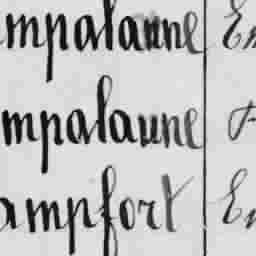 mpalaune En
mpalaune
ampfort En